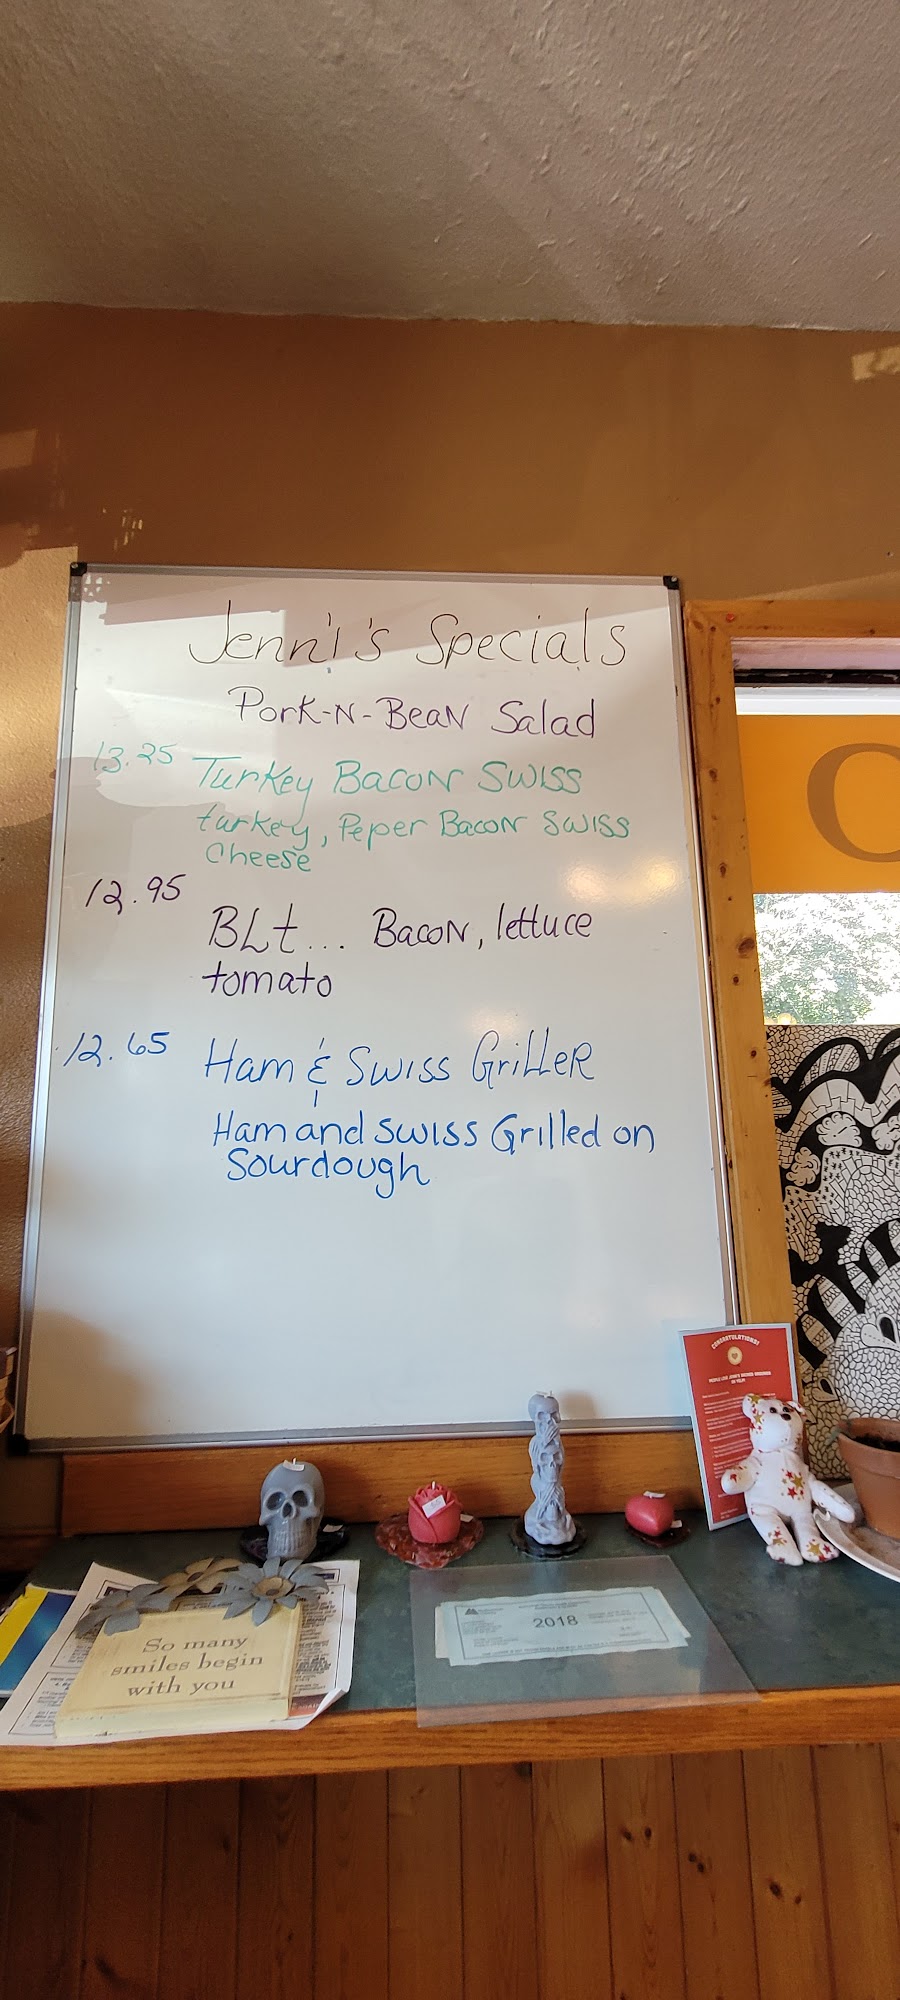 Jenni's Specials
Pork-N-Bean Salad
13.25 Turkey Bacon Swiss
turkey, Peper Bacon Swiss
Cheese
12.95
BLt... Bacon, lettuce
tomato
12.65 Ham & Swiss Griller
Ham and Swiss Grilled on
Sourdough
CONGRATULATIONS!
So many
smiles begin
with you
2018